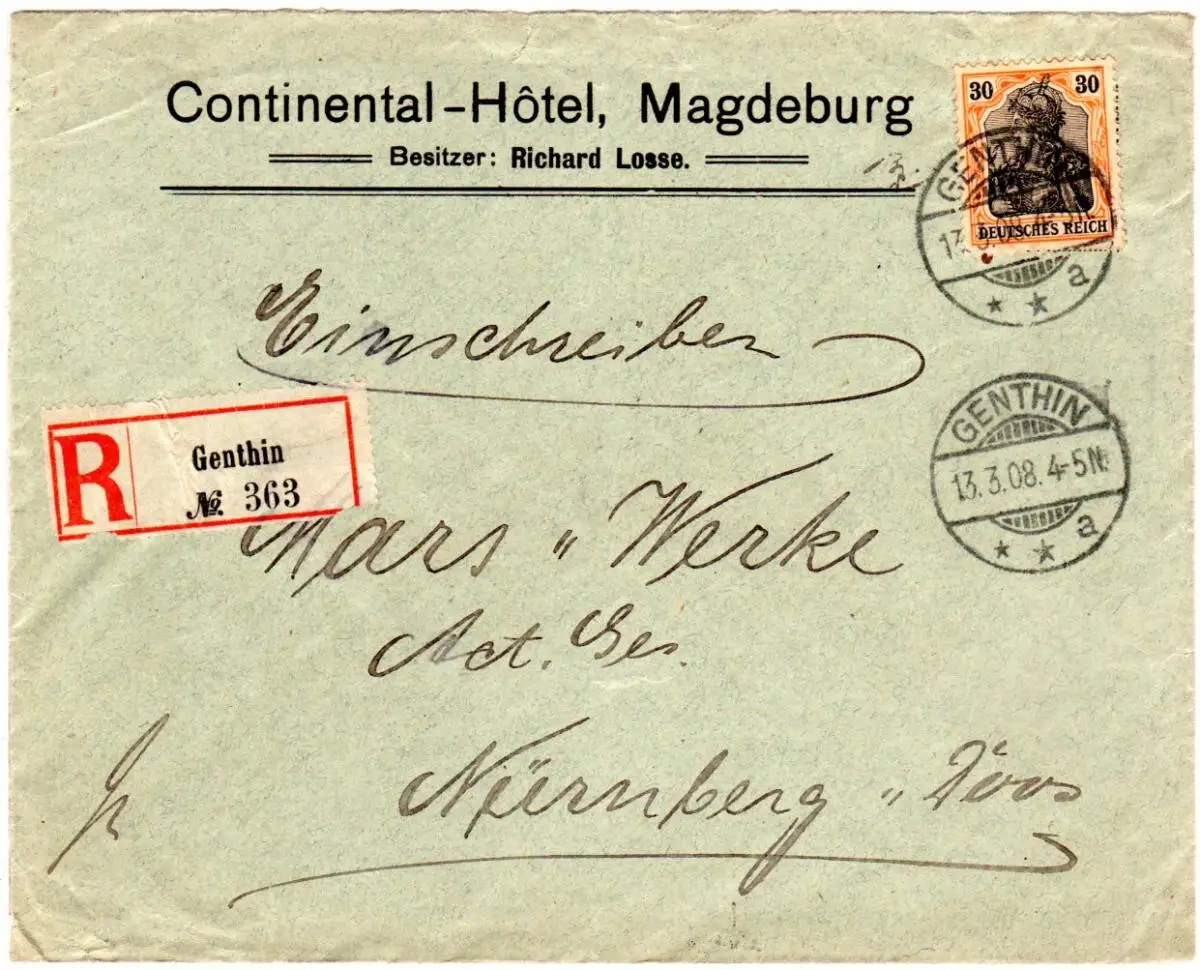 Continental-Hôtel, Magdeburg
Besitzer: Richard Losse.
30 30
DEUTSCHES REICH
GENTHIN
13.3.08.4-5N.
a
Einschreiben
GENTHIN
13.3.08.4-5N.
a
R
Genthin
№ 363
Mars „ Werke
Act. Ges.
Nürnberg „ Doos